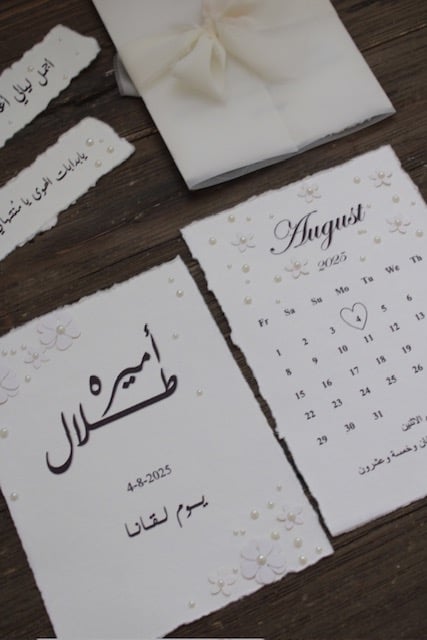 اجمل ليالي
يابدايات الهوى يا
August
2025
Fr Sa Su Mo Tu We Th
1 2 3 4 5 6
8 9 10 11 12 13
15 16 17 18 19
22 23 24 25 26
29 30 31
الاثنين
وخمسة وعشرون
أميره
طلال
4-8-2025
يوم لقانا